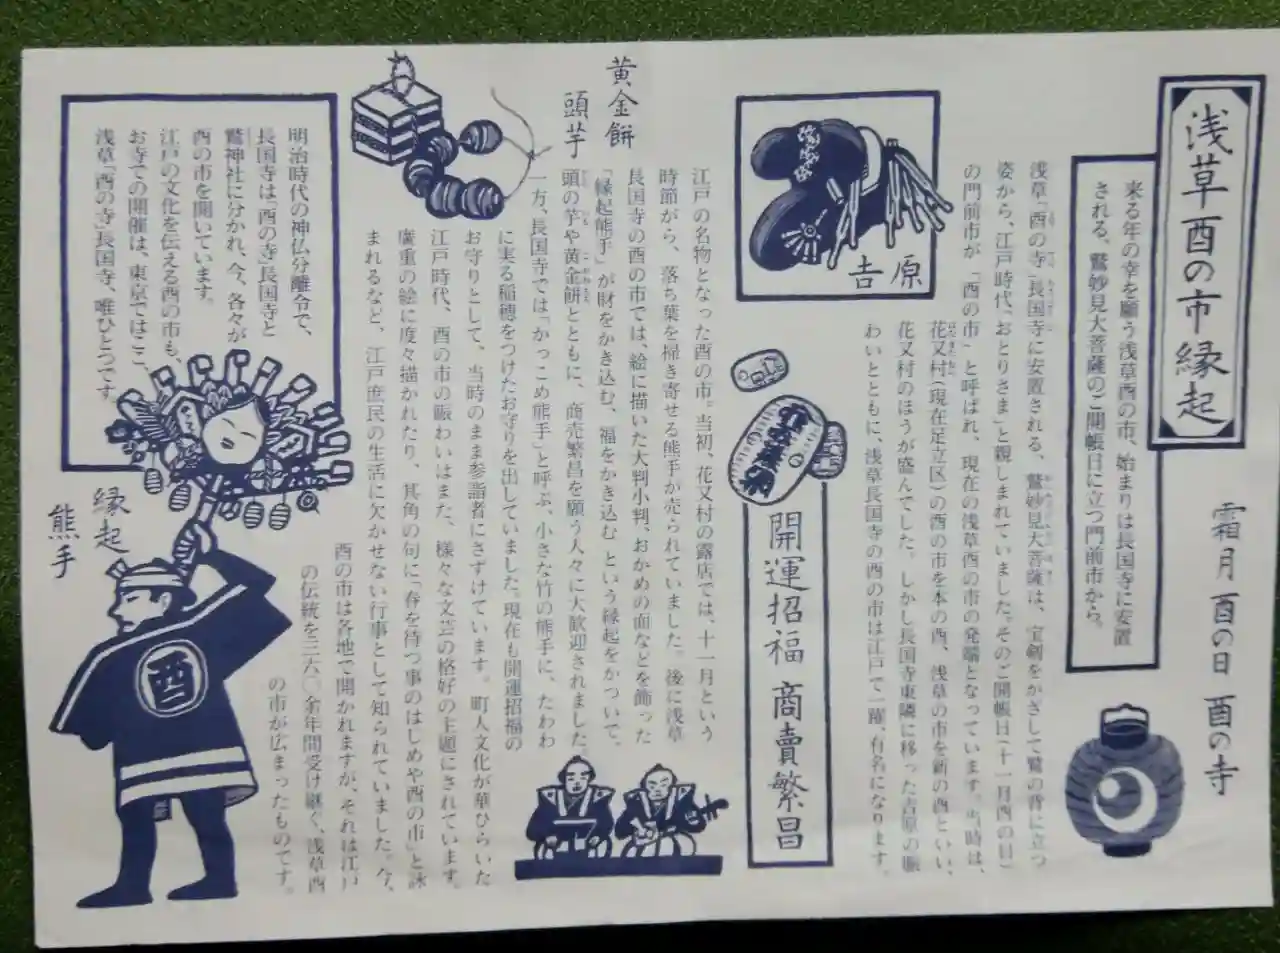 浅草酉の市縁起
霜月 酉の日 酉の寺
来る年の幸を願う浅草酉の市、始まりは長国寺に安置
される、鷲妙見大菩薩のご開帳日に立つ門前市から。
浅草「酉の寺」長国寺に安置される、鷲妙見大菩薩は、宝剣をかざして鷲の背に立つ
姿から、江戸時代、おとりさま」と親しまれていました。そのご開帳日(十一月酉の日)
の門前市が「酉の市」と呼ばれ、現在の浅草酉の市の発端となっています。当時は、
花又村(現在足立区)の酉の市を本の酉、浅草の市を新の酉といい、
花又村のほうが盛んでした。しかし長国寺東隣に移った吉原の賑
わいとともに、浅草長国寺の酉の市は江戸で一躍、有名になります。
吉原
開運招福 商賣繁昌
黄金餅
頭芋
江戸の名物となった酉の市。当初、花又村の露店では、十一月という
時節がら、落ち葉を掃き寄せる熊手が売られていました。後に浅草
長国寺の酉の市では、絵に描いた大判小判、おかめの面などを飾った
「縁起熊手」が財をかき込む、福をかき込む という縁起をかついで、
頭の芋や黄金餅とともに、商売繁昌を願う人々に大歓迎されました。
一方、長国寺では「かっこめ熊手」と呼ぶ、小さな竹の熊手に、たわわ
に実る稲穂をつけたお守りを出していました。現在も開運招福の
お守りとして、当時のまま参詣者にさずけています。町人文化が華ひらいた
江戸時代、酉の市の賑わいはまた、様々な文芸の格好の主題にされています。
廣重の絵に度々描かれたり、其角の句に「春を待つ事のはじめや酉の市」と詠
まれるなど、江戸庶民の生活に欠かせない行事として知られていました。今、
酉の市は各地で開かれますが、それは江戸
の伝統を三六〇余年間受け継ぐ、浅草酉
の市が広まったものです。
明治時代の神仏分離令で、
長国寺は「酉の寺」長国寺と
鷲神社に分かれ、今、各々が
酉の市を開いています。
江戸の文化を伝える酉の市も、
お寺での開催は、東京ではここ
浅草「酉の寺」長国寺、唯ひとつです。
縁起
熊手
酉